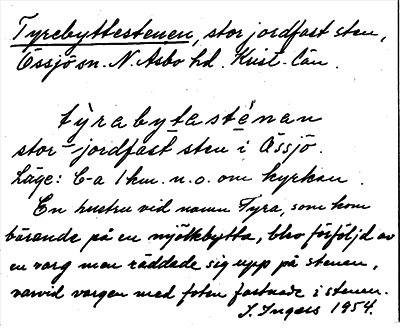 Tyrebyttestenen, stor jordfast sten,
Össjö sn. N. Åsbo hd. Krist. län.
týrabytasténan
stor jordfast sten i Össjö.
Läge: C-a 1 km. n.o. om kyrkan.
En hustru vid namn Tyra, som kom
bärande på en mjölkbytta, blev förföljd av
en varg men räddade sig upp på stenen,
varvid vargen med foten fastnade i stenen.
S. Ingers 1954.